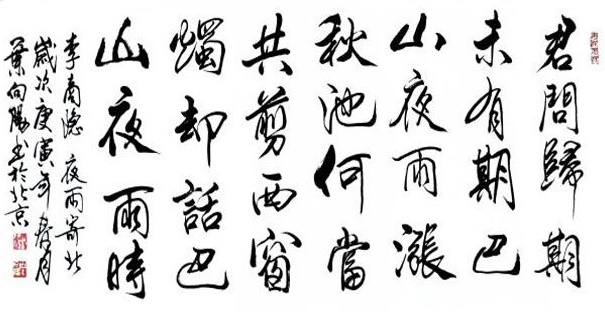 君問歸期
未有期巴
山夜雨漲
秋池何當
共剪西窗
燭却話巴
山夜雨時
李商隱 夜雨寄北
歲次庚寅年春月
葉向陽書於北京